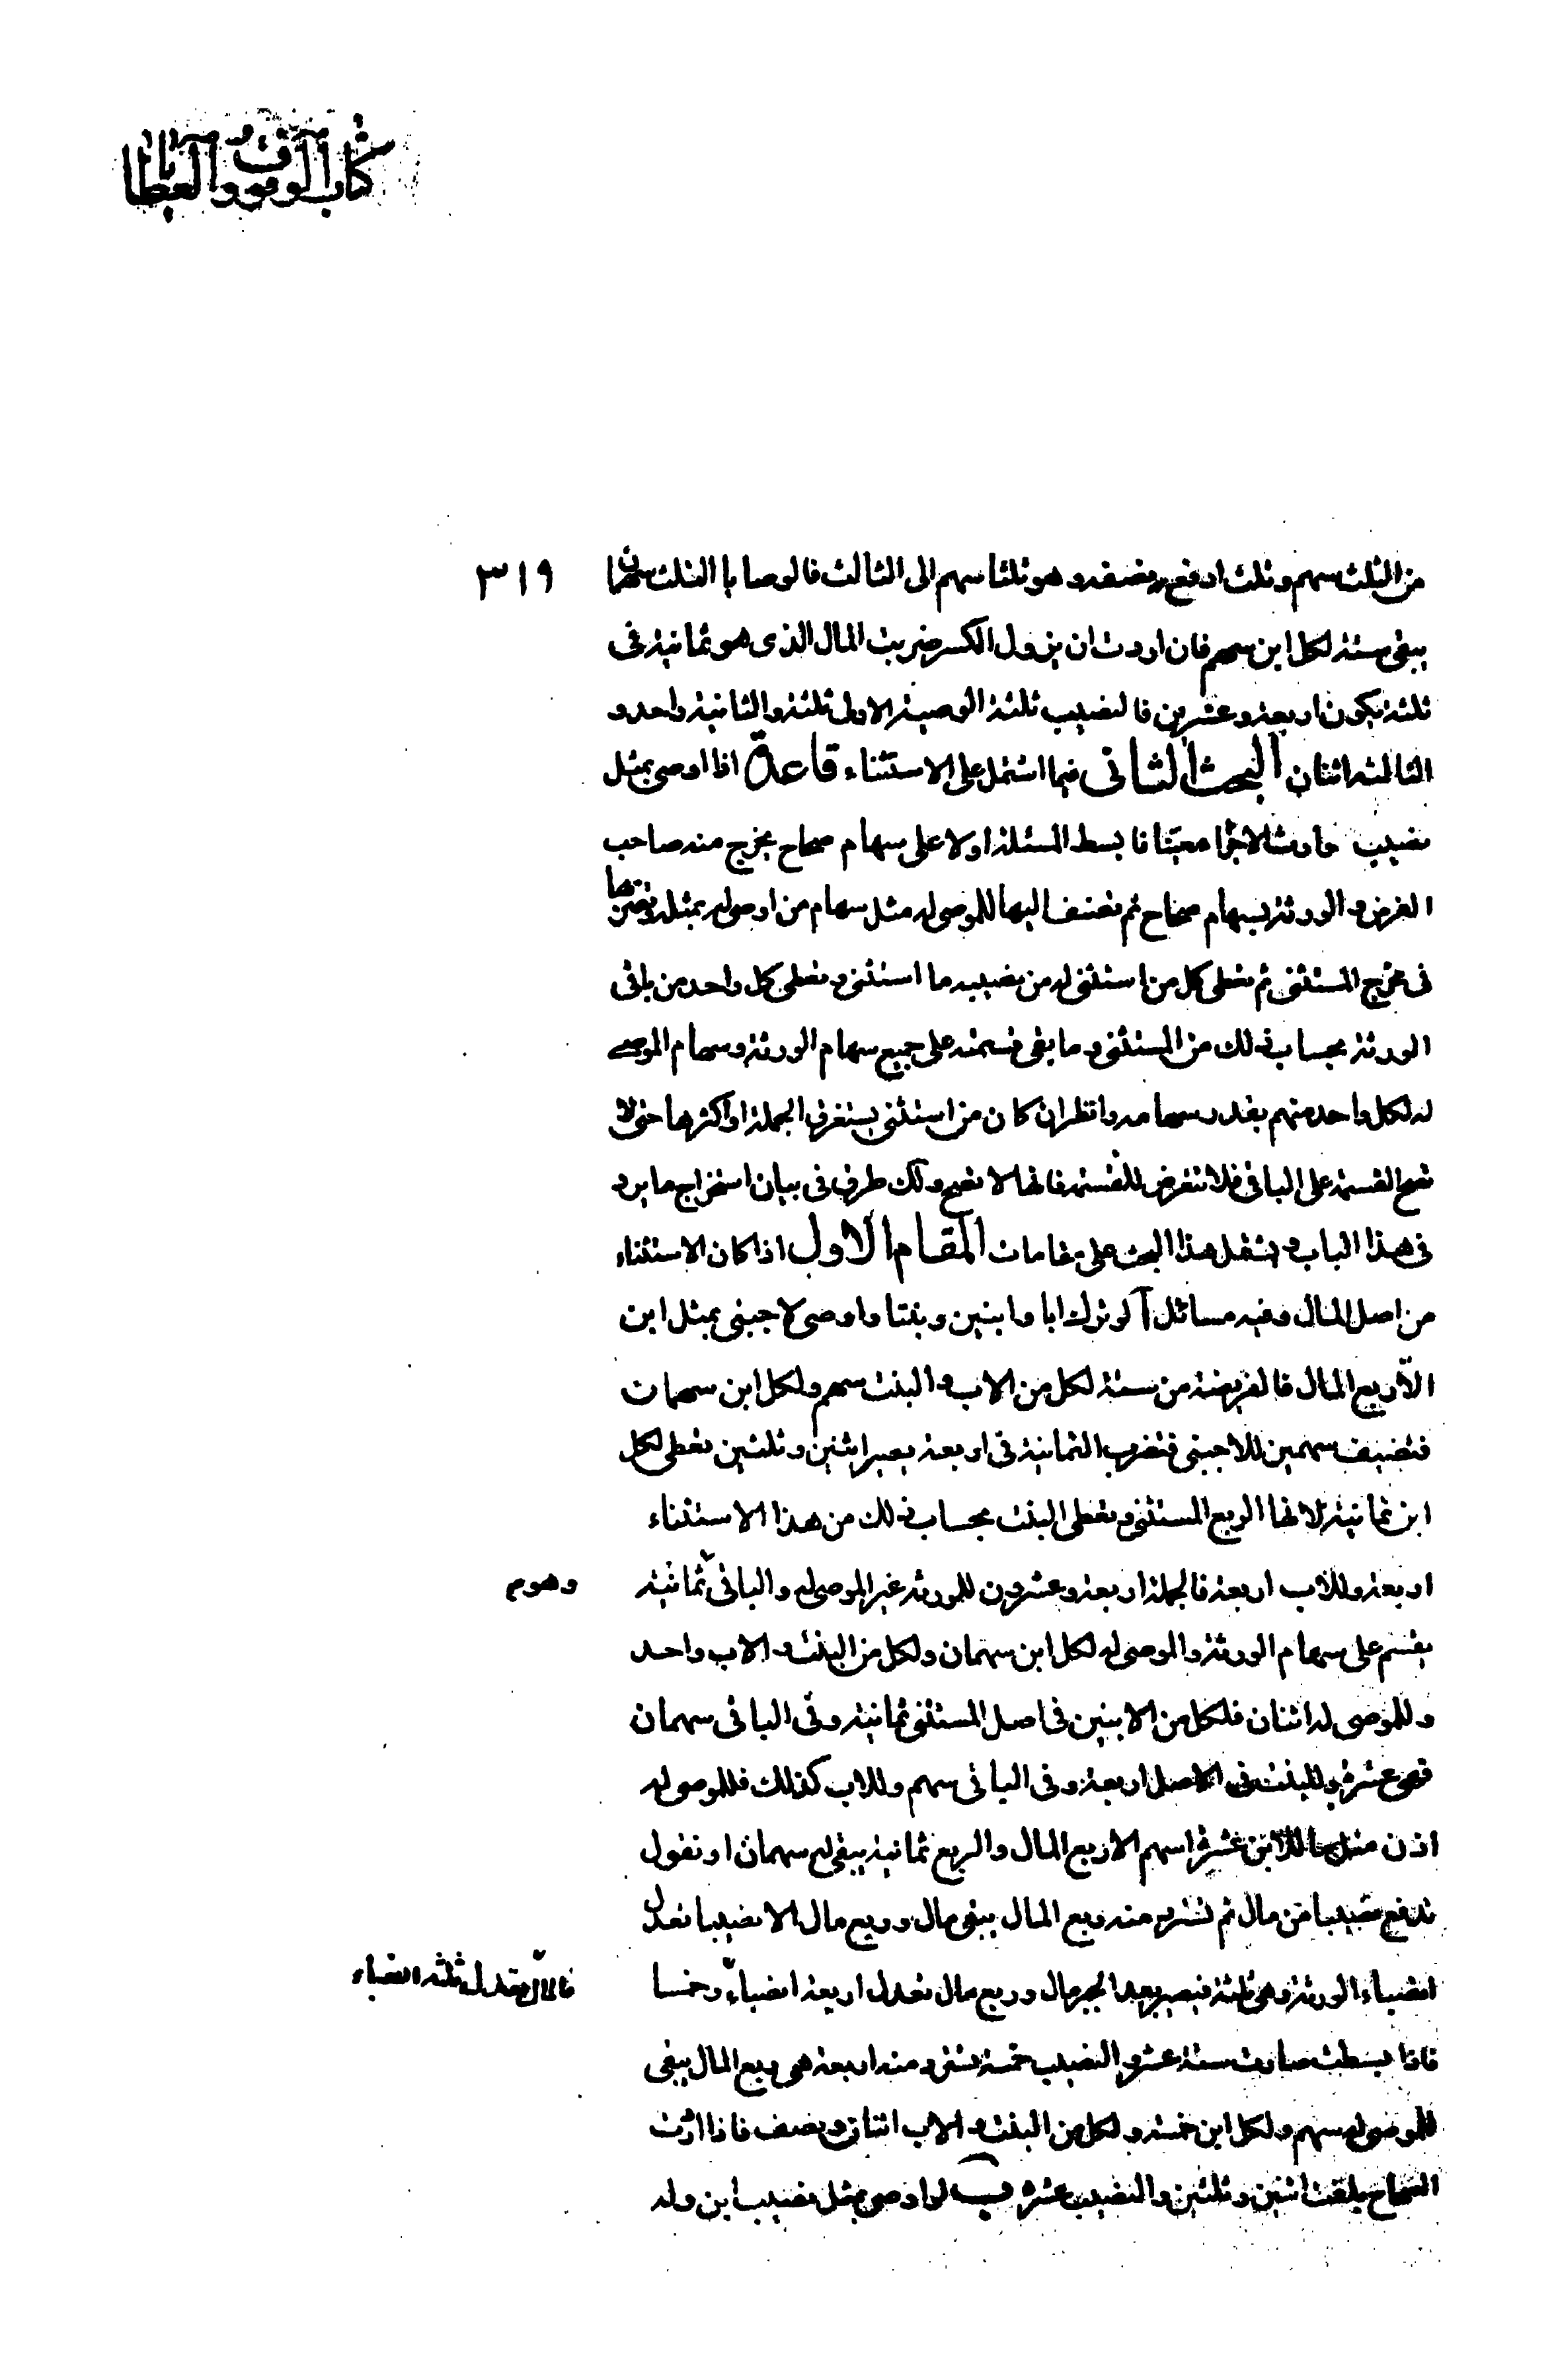 كتاب الوقوف والعطايا
٣١٩
من الثلث سهم وثلث ادفع نصفه وهو ثلثا سهم الى الثالث فالوصايا الثلث سهمان
يبقى ستة لكل ابن سهم فان اردت ان يزول الكسر ضربت المال الذى هو ثمانية فى
ثلثة يكون اربعة وعشرين فالنصيب ثلثة الوصية الاولى ثلثة والثانية واحد و
الثالثة اثنان البحث الثانى فيما اشتمل على الاستثناء قاعدة اذا اوصى بمثل
نصيب وارث الا جزءا معيّنا فابسط المسئلة اولا على سهام صحاح يخرج منه صاحب
الفرض والورثة بسهام صحاح ثم تضيف اليها للموصى له مثل سهام من اوصى له بمثله وتضربها
فى مخرج المستثنى ثم تعطى كل من استثنى له من نصيبه ما استثنى وتعطى كل واحد من باقى
الورثة بحساب ذلك من المستثنى وما بقى قسمته على جميع سهام الورثة وسهام الموصى
له لكل واحد منهم بقدر سهامه وانظر ان كان من استثنى يستغرق الجملة او اكثرها حتى لا
تصح القسمة على الباقى فلا تتعرض للقسمة فانها لا تصح ولك طرق فى بيان استخراج ما يرد
فى هذا الباب ويشتمل هذا البحث على مقامات المقام الاول اذا كان الاستثناء
من اصل المال وفيه مسائل آ لو ترك ابا وابنين وبنتا واوصى لاجنبى بمثل ابن
الّا ربع المال فالفريضة من ستة لكل من الاب والبنت سهم ولكل ابن سهمان
فتضيف سهمين للاجنبى فتضرب الثمانية فى اربعة يصير اثنين وثلثين تعطى لكل
ابن ثمانية لانها الربع المستثنى وتعطى البنت بحساب ذلك من هذا الاستثناء
اربعة وللاب اربعة فالجملة اربعة وعشرون للورثة غير الموصى له والباقى ثمانية
وهوم
يقسم على سهام الورثة والموصى له لكل ابن سهمان ولكل من البنت والاب واحد
وللموصى له اثنان فلكل من الابنين فى اصل المستثنى ثمانية وفى الباقى سهمان
فهى عشرة وللبنت فى الاصل اربعة وفى الباقى سهم وللاب كذلك فللموصى له
اذن مثل ما للابن عشرة اسهم الا ربع المال والربع ثمانية يبقى له سهمان او نقول
ندفع نصيبا من مال ثم نسترد منه ربع المال يبقى مال وربع مال الا نصيبا تعدل
انصباء الورثة وهى ثلثة فيصير بعد الجبر مال وربع مال تعدل اربعة انصباء وخمسا
فالمال يعدل ثلثة انصباء
فاذا بسطت صارت ستة عشر والنصيب خمسة تسترد منه اربعة هى ربع المال يبقى
للموصى له سهم ولكل ابن خمسة ولكل من البنت والاب اثنان ونصف فاذا اردت
الصحاح بلغت اثنين وثلثين والنصيب عشرة ب لو اوصى بمثل نصيب ابن وله